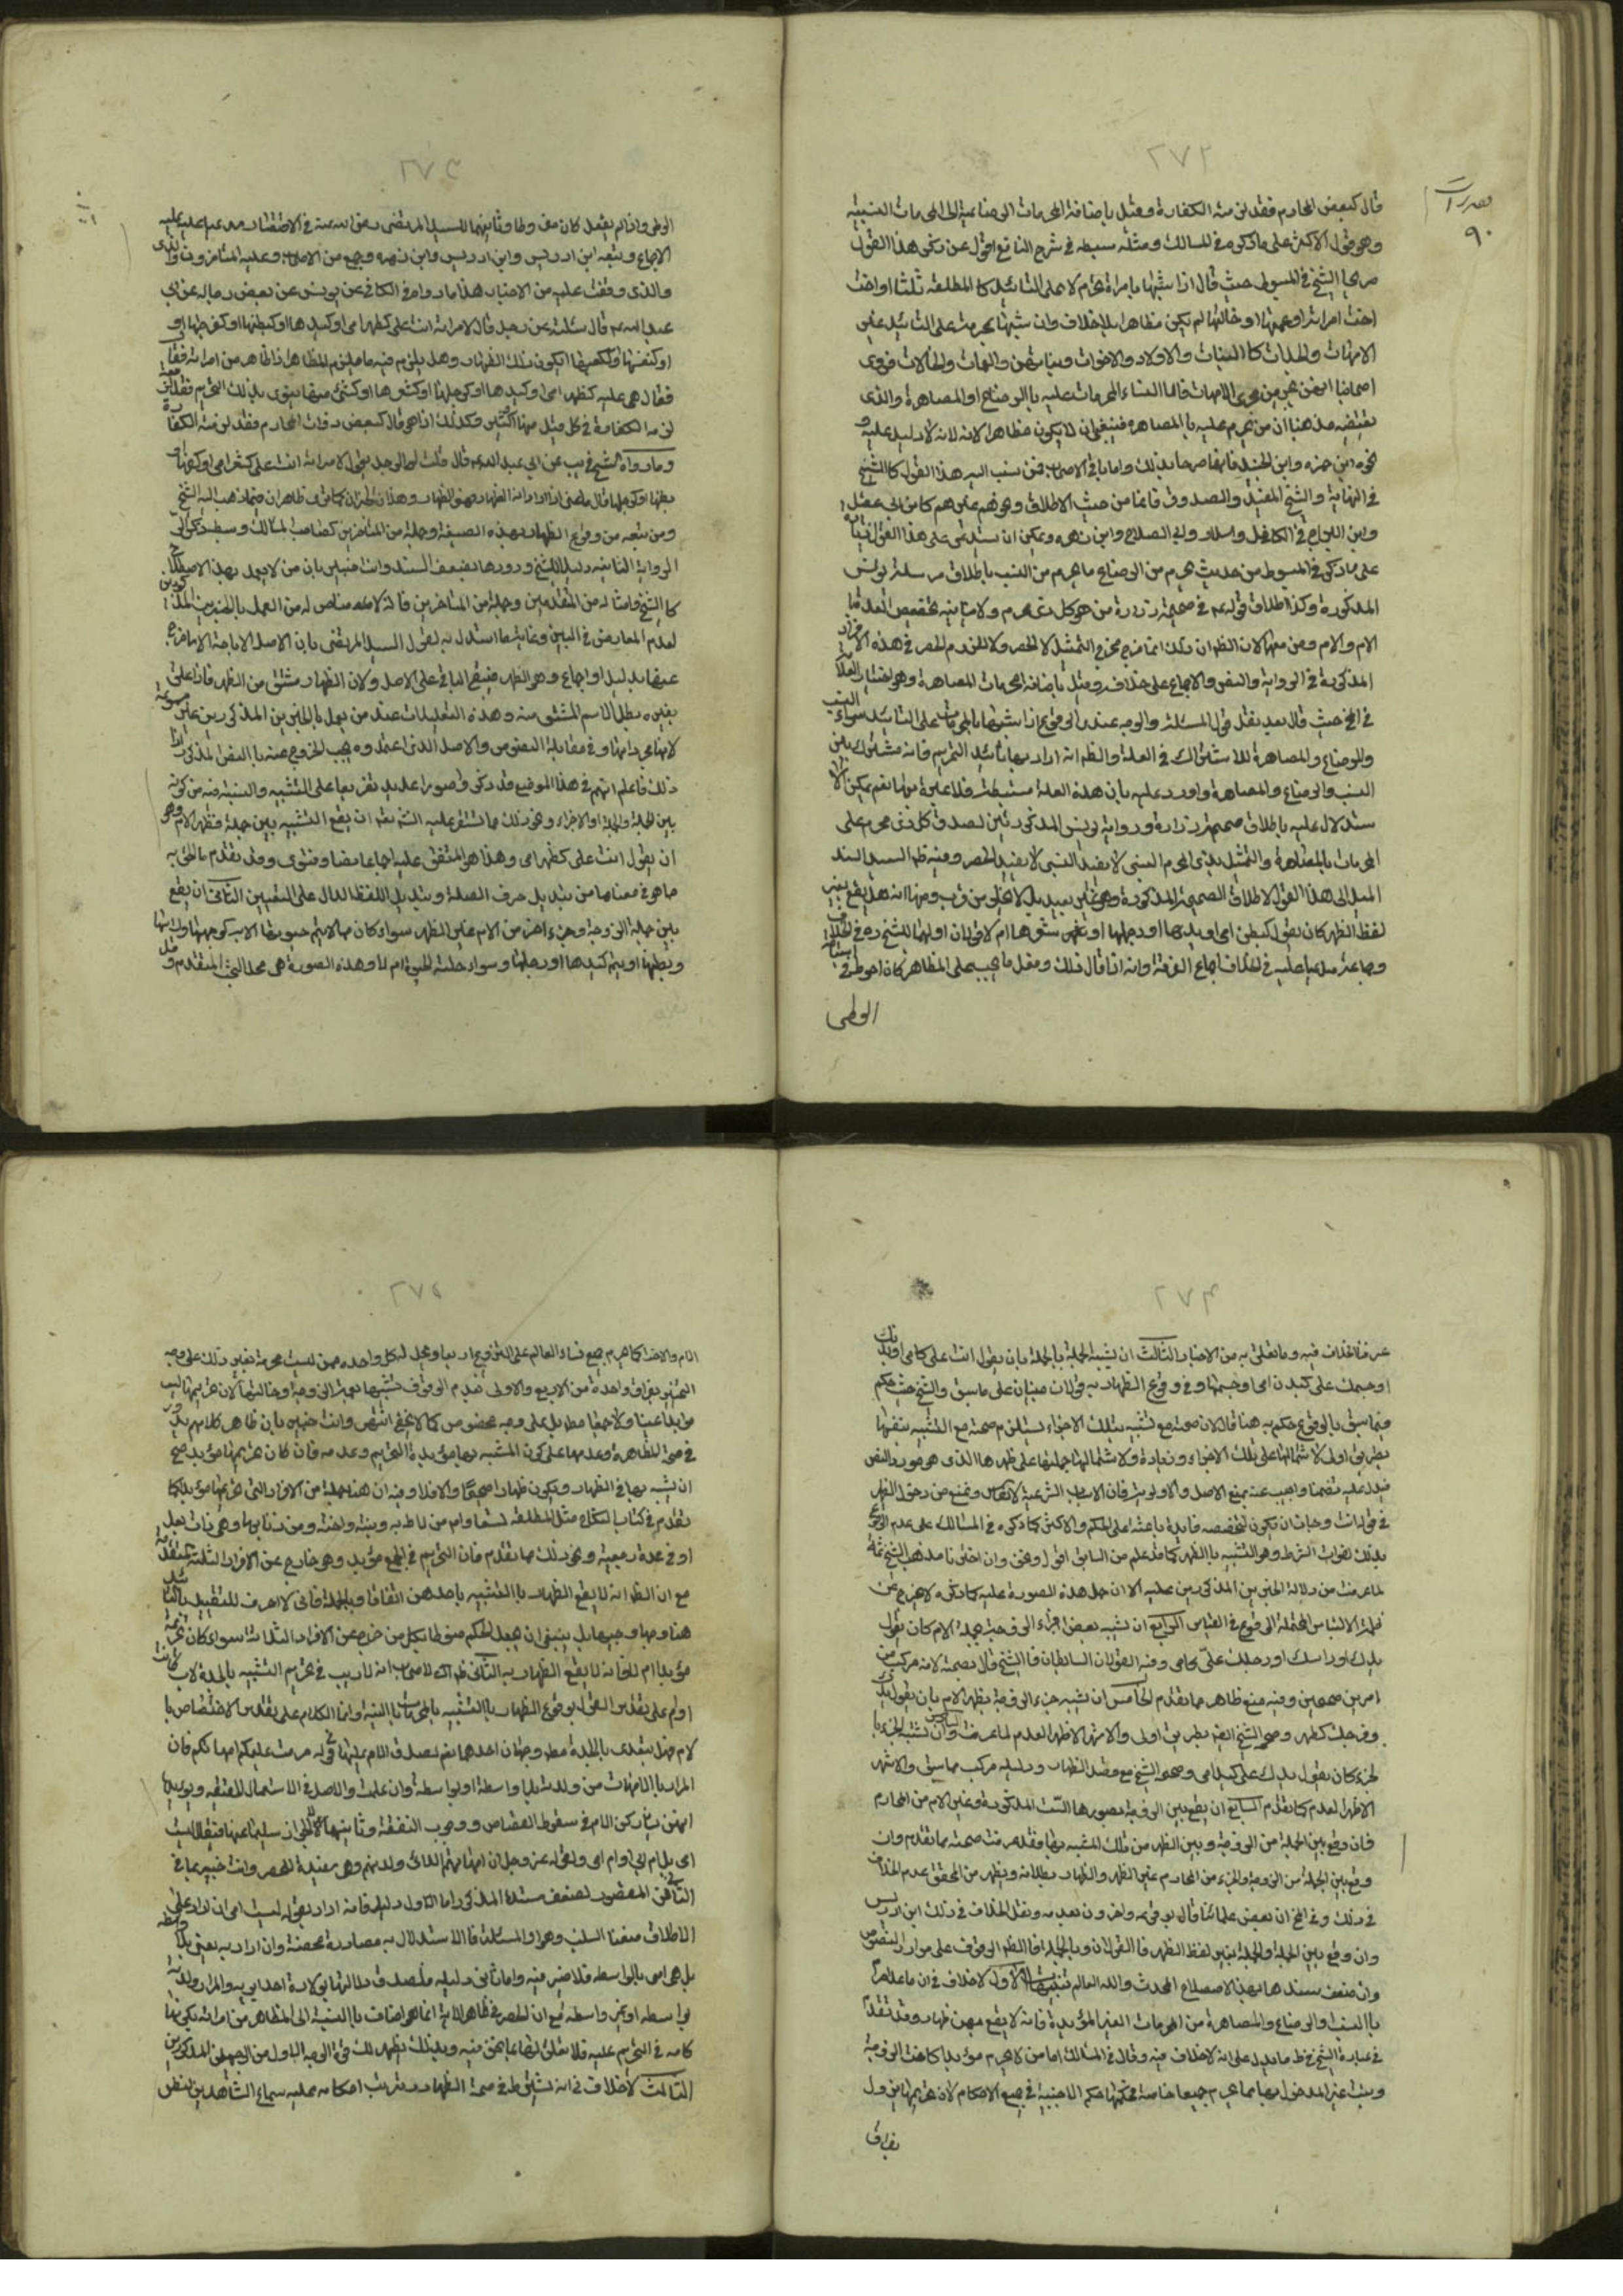 ٢٧٢
قال كبعض المحارم فقد لزمته الكفارة وقيل باضافة المحرمات الرضاعية الى المحرمات النسبية
وهو قول الاكثر على ما ذكره في المسالك ومثله سبطه في شرح النافع اقول عن ذكر هذا القول
صريحا الشيخ في المبسوط حيث قال اذا شبهها بامراة تحرم لا على التابيد كالمطلقة ثلثا او اخت
اخت امراته او عمتها او خالتها لم يكن مظاهرا بلا خلاف وان شبهها بمحرمة على التابيد غير
الامهات والجدات كالبنات والاولاد والاخوات وبناتهن والعمات والخالات فروى
اصحابنا انهن يجرين مجرى الامهات فاما النساء المحرمات عليه بالرضاع او المصاهرة والذى
يقتضيه مذهبنا ان من يحرم عليه بالمصاهرة فينبغي ان لا يكون مظاهرا لانه لا دليل عليه
ابن حمزه وابن الجنيد بذلك واما باقي الاصحاب فمن نسب اليه هذا القول كالشيخ
في النهاية والشيخ المفيد والصدوق فانما من حيث الاطلاق وهو غيرهم كابن ابي عقيل
وابن البراج في الكامل وسلار وابي الصلاح وابن زهره ويمكن ان يستدل على هذا القول
على ما ذكر في المبسوط من حديث يحرم من الرضاع ما يحرم من النسب باطلاق مرسلة يونس
المذكورة وكذا اطلاق قوله ع في صحيحة زرارة من هو كل ذى محرم ولا ينافيه تخصيص العد
الام والام ومن معها لان الظاهر ان ذلك انما خرج مخرج التمثيل لا الحصر ولا للزوم الحصر في هذه الافراد
المذكورة في الرواية والنص والاجماع على خلافه وقيل باضافة محرمات المصاهرة وهو اختيار العلامة
في المخ حيث قال بعد نقل قول المسئلة والوجه عندى الوقوع اذا شبهها بالمحرمات على التابيد سواء النسب
والرضاع والمصاهرة للاشتراك في العلة والظاهر انه اراد بها تابيد التحريم فانه مشترك بين
النسب والرضاع والمصاهرة واورد عليه بان هذه العلة مستنبطة فلا عبرة بها نعم يمكن الا
ستدلال عليه باطلاق صحيحة زرارة ورواية يونس المذكورتين لصدق كل ذى محرم على
المحرمات بالمصاهرة والتمثيل بذى المحرم النسبي لا يفيد الحصر ومنه ظهر السيد السند
الميل الى هذا القول لاطلاق الصحيحة المذكورة وهو غير بعيد بل لا يخلو من قرب ومنها انه هل يقع بغير
لفظ الظهر كان يقول كبطن امى او يدها او رجلها او نحو شعرها ام لا قولان اولهما للشيخ ره في الخلاف
وجماعة مدعيا عليه في الخلاف اجماع الفرقة وانه اذا قال ذلك وفعل ما يجب على المظاهر كان احوط في استباحة
الوطى
٢٧٣
الوطى واذا لم يفعل كان مفرطا وثانيهما للسيد المرتضى رضى الله عنه في الانتصار مدعيا عليه
الاجماع وتبعه ابن ادريس وابن زهره وجمع من الاصحاب وعليه المتاخرون
والذى وقفت عليه من الاخبار هذا ما رواه في الكافي عن يونس عن بعض رجاله عن ابى
عبد الله ع قال سئلته عن رجل قال لامراته انت على كظهر امى او كيدها او كبطنها او كفرجها او
او كنفسها او ككعبها ايكون ذلك الظهار وهل يلزم فيه ما يلزم المظاهر اذا ظاهر من امراته فقا
فقال هى عليه كظهر امى او كيدها او كرجلها او كشعرها او كشئ منها ينوى بذلك التحريم فقد
لزمه الكفارة في كل قليل منها او كثير وكذلك اذا هو قال كبعض ذوات المحارم فقد لزمته الكفارة
وما رواه الشيخ في يب عن ابى عبد الله ع قال قلت له الرجل يقول لامراته انت على كشعر امى او ككفها او
بطنها او كرجلها قال ما عنى ان اراد به الظهار فهو الظهار وهذان الخبران كما ترى ظاهران فيما ذهب اليه الشيخ
ومن تبعه من وقوع الظهار بهذه الصيغة وجملة من المتاخرين كصاحب المسالك وسبطه
الرواية الثانية دليلا للشيخ وردوها بضعف السند وانت خبير بان من لا يعمل بهذا الاصطلاح
كالشيخ وامثاله من المتقدمين وجملة من المتاخرين فانه لا مناص له من العمل بالخبرين المذكورين
لعدم المعارض في البين وغاية ما استدل به لقول السيد المرتضى بان الاصل الاباحة الا ما خرج
عنها بدليل او اجماع وهو الظهر فيبقى الباقي على الاصل ولان الظهار مشتق من الظهر فاذا علق
بغيره بطل الاسم المشتق منه وهذه التعليلات عند من يعمل بالخبرين المذكورين غير مسموعة
لانها في مقابلة النصوص والاصل الذى اعتمدوه يجب الخروج عنه بالنص المذكور اذا
ذلك فاعلم انهم في هذا الموضع قد ذكروا صورا عديدة تفريعا على التشبيه والنسبة فيه من كونه
بين الجملة والجملة او الاجزاء ونحو ذلك مما تشتمل عليه ان يقع التشبيه بين جملة وظهر الام وهو
ان يقول انت على كظهر امى وهذا هو المتفق عليه اجماعا نصا وفتوى وقد تقدم ما لحق به
ما هو في معناها من تبديل حرف الصلة وتبديل اللفظ الدال على التعيين الثانى ان يقع
بين جملة الزوجة وجزء اخر من الام غير الظهر سواء كان مما لا يتم حيوتها الا به كوجهها ورأسها
وبطنها او يتم كيدها او رجلها وسواء حلته الحيوة ام لا وهذه الصورة هى محل البحث المتقدم
٢٧٤
عرفت الخلاف فيه وما يتعلق به من الاخبار الثالث ان يشبه الجملة بالجملة بان يقول انت على كامى او بدنك
او جسمك على كبدن امى او جسمها وفي وقوع الظهار به قولان مبنيان على ما سبق والشيخ حيث حكم
فيما سبق بالوقوع حكم به هنا قال لان صحته مع تشبيه بتلك الاجزاء يستلزم صحته مع التشبيه بنفسها
بطريق اولى لاشتمالها على تلك الاجزاء وزيادة ولاشتمالها جملتها على ظهرها الذى هو مورد النص
فيدل عليه تضمنا واجيب عنه بمنع الاصل والاولوية فان الاسباب الشرعية لا تقاس وتمنع من دخول الظهر
في قولها انت وجاز ان يكون لتخصيصه فايدة باعثة على الحكم والاكثر كما ذكره في المسالك على عدم الوقوع
بذلك لفوات الشرط وهو التشبيه بالظهر كما قد علم من السابق اقول ونحن وان اخترنا مذهب الشيخ ثمة
لما عرفت من دلالة الخبرين المذكورين عليه الا ان حمل هذه الصورة عليه كما ذكره لا يخرج عن
القياس الرابع ان يشبه بعض اجزاء الزوجة بجملة الام كان يقول
يدك او راسك او رجلك على كامى وفيه القولان السابقان فالشيخ قال بصحته لانه مركب من
امرين صحيحين وفيه منع ظاهر مما تقدم الخامس ان يشبه جزء الزوجة بظهر الام بان يقول يدك
وفرجك كظهر وصح الشيخ ايضا بطريق اولى والاشهر الاظهر العدم لما عرفت السادس وان تشبه الجزء با
لجزء كان يقول يدك على كيد امى وصححه الشيخ مع قصد الظهار ودليله مركب مما سبق والاشهر
الاظهر العدم كما تقدم السابع ان يقع بين الزوجة بصورها الست المذكورة وغير الام من المحارم
فان وقع بين الجملة من الزوجة وبين الظهر من تلك المشبه بها فقد عرفت صحته بما تقدم وان
وقع بين الجملة من الزوجة والجزء من المحارم غير الظهر والظهار بطلانه ويظهر من المحقق عدم الخلاف
في ذلك وفي المخ ان بعض علمائنا قال بوقوعه واخرون بعدمه ونقل الخلاف في ذلك ابن ادريس
وان وقع بين الجملة والجملة بغير لفظ الظهر فالقولان وبالجملة فالظاهر الوقوف على موارد النصوص
وان ضعف سندها بهذا الاصطلاح المحدث والله العالم تنبيهات الاول لا خلاف في ان ما عدا المحرمة
بالنسب والرضاع والمصاهرة من المحرمات الغير المؤبدة فانه لا يقع بهن ظهار وقد تقدم
في عبارة الشيخ في ط ما يدل على انه لا خلاف فيه وقال في المسالك اما من لا يحرم مؤبدا كاخت الزوجة
وبنت غير المدخول بها مما يحرم جميعا خاصة فحكمها حكم الاجنبية في جميع الاحكام لان تحريمها يزول
بفراق
٢٧٥
الام والاخت كما يحرم جميع نساء العالم على المتزوج اربعا ويحل له كل واحدة ممن ليست محرمة بغير ذلك على وجه
التخيير بفراق واحدة من الاربع والاولى عدم الوقوف تشبيهها بعمة الزوجة وخالتها لان تحريمها ليس
مؤبدا عينا ولا جمعا مط بل على وجه مخصوص كما لا يخفى انتهى وانت خبير بان ظاهر كلامهم يدور
في صحة المظاهرة وعدمها على كون المشبه بها مؤبدة التحريم وعدمه فان كان تحريمها مؤبدا صح
ان يشبه بها في الظهار ويكون ظهارا صحيحا والا فلا وفيه ان هنا جملة من الافراد التى تحريمها مؤبد كما
تقدم في كتاب النكاح مثل المطلقة تسعا وام من لاط به وبنته واخته ومن زنا بها وهى ذات بعل
او في عدة رجعية ونحو ذلك مما تقدم فان التحريم في الجميع مؤبد وهو خارج عن الافراد الثلثة المتقدمة
مع ان الظاهر انه لا يقع الظهار بالتشبيه باحدهن اتفاقا وبالجملة فانى لا اعرف للتقييد بالتابيد
هنا وجها وجيها بل ينبغي ان يجعل الحكم منوطا بكل من خرج عن الافراد الثلثة سواء كان تحريمه
مؤبدا ام لا فانه لا يقع الظهار به الثانى ظهر الاصحاب انه لا ريب في تحريم التشبيه بالجدة لاب كانت
او لام على تقدير القول بوقوع الظهار بالتشبيه بالمحرمات بالنسبة وانما الكلام على تقدير الاختصاص با
لام فهل يتعدى بالجدة مط وجهان احدهما نعم لصدق الام عليها في قوله حرمت عليكم امهاتكم فان
المراد بالامهات من ولدت بلا واسطة او بواسطة وان علت والاصل في الاستعمال الحقيقة ويؤيدها
انهن يشاركن الام في سقوط القصاص ووجوب النفقة وثانيهما لا لجواز سلبها عنها فيقال ليست
امى بل ام ابى او ام امى ولقوله عز وجل ان امهاتهم الا اللائ ولدنهم وهى مفيدة للحصر وانت خبير بما في
الثانى من القصور لضعف مستنده المذكور اما الاول دليله فانه ان اراد بقوله ليست امى ان اراد على
الاطلاق منعنا السلب وهو اول المسئلة فالاستدلال به مصادرة محضة وان اراد به بغير واسطة
بل هى امى بالواسطة فلا ضير فيه واما ثانى دليليه فلصدق
بواسطة او بغير واسطة مع ان الحصر في ظاهر الاية انما هو اضاف بالنسبة الى المظاهر من امراته بكونها
كامه في التحريم عليه فلا تعلق لها بما نحن فيه وبذلك يظهر لك قوة الوجه الاول من الوجهين المذكورين
الثالث لا خلاف في انه يشترط في صحة الظهار وترتب احكامه عليه سماع الشاهدين لنص